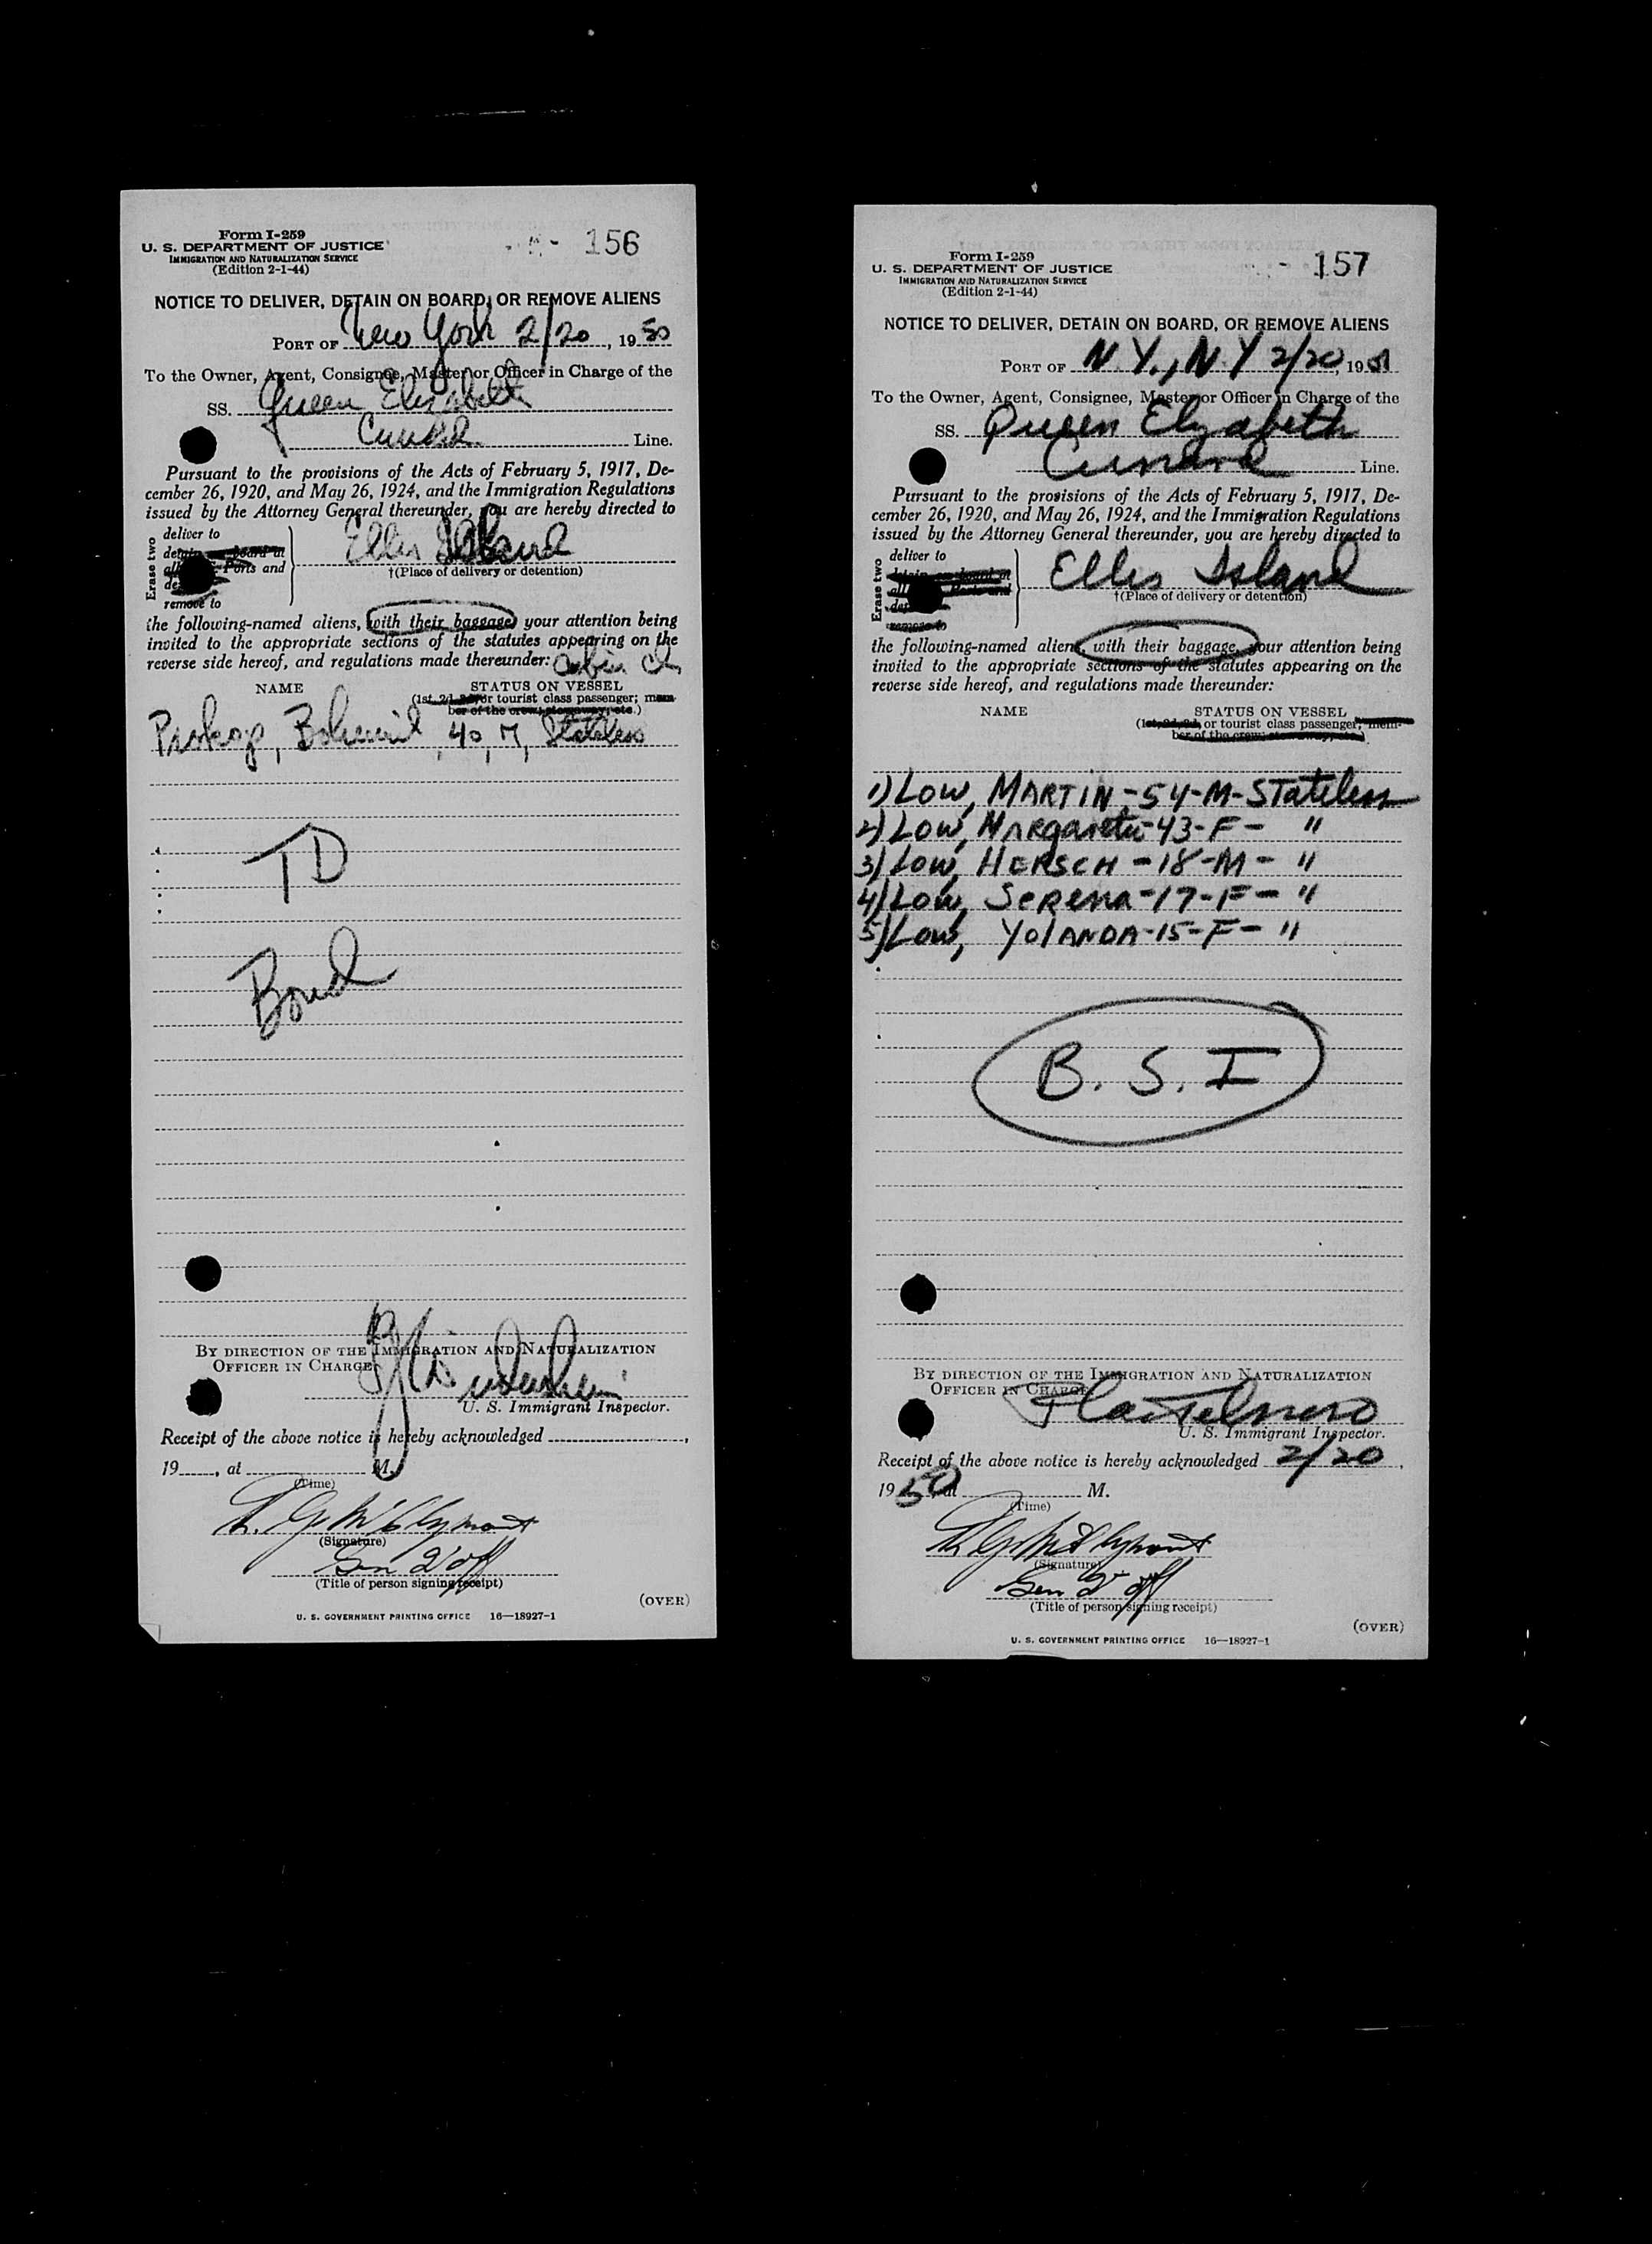 Form I-259
U. S. DEPARTMENT OF JUSTICE
IMMIGRATION AND NATURALIZATION SERVICE
(Edition 2-1-44)
156
NOTICE TO DELIVER, DETAIN ON BOARD, OR REMOVE ALIENS
PORT OF New York 2/20, 1950
To the Owner, Agent, Consignee, Master or Officer in Charge of the
SS. Queen Elizabeth
Cunard Line.
Pursuant to the provisions of the Acts of February 5, 1917, De-
cember 26, 1920, and May 26, 1924, and the Immigration Regulations
issued by the Attorney General thereunder, you are hereby directed to
Erase two
deliver to
board at
Ports and
remove to
Ellis Island
†(Place of delivery or detention)
the following-named aliens, with their baggage, your attention being
invited to the appropriate sections of the statutes appearing on the
reverse side hereof, and regulations made thereunder: Cabin
NAME STATUS ON VESSEL
(1st, 2d, or tourist class passenger; mem-
ber of the crew; stowaway; etc.)
Prokop, Bohumil, 40, M, Stateless
TD
Bond
BY DIRECTION OF THE IMMIGRATION AND NATURALIZATION
OFFICER IN CHARGE
U. S. Immigrant Inspector.
Receipt of the above notice is hereby acknowledged
19 , at M.
(Time)
(Signature)
(Title of person signing receipt)
(OVER)
U. S. GOVERNMENT PRINTING OFFICE 16—18927-1
Form I-259
U. S. DEPARTMENT OF JUSTICE
IMMIGRATION AND NATURALIZATION SERVICE
(Edition 2-1-44)
157
NOTICE TO DELIVER, DETAIN ON BOARD, OR REMOVE ALIENS
PORT OF N.Y., N.Y 2/20, 19
To the Owner, Agent, Consignee, Master or Officer in Charge of the
SS. Queen Elizabeth
Cunard Line.
Pursuant to the provisions of the Acts of February 5, 1917, De-
cember 26, 1920, and May 26, 1924, and the Immigration Regulations
issued by the Attorney General thereunder, you are hereby directed to
Erase two
deliver to
remove to
Ellis Island
†(Place of delivery or detention)
the following-named aliens, with their baggage, your attention being
invited to the appropriate sections of the statutes appearing on the
reverse side hereof, and regulations made thereunder:
NAME STATUS ON VESSEL
(1st, 2d, 3d, or tourist class passenger; mem-
ber of the crew; stowaway; etc.)
1) Low, MARTIN - 54 - M - Stateless
2) Low, Margarete - 43 - F - "
3) Low, HERSCH - 18 - M - "
4) Low, Serena - 17 - F - "
5) Low, YOLANDA - 15 - F - "
B. S. I
BY DIRECTION OF THE IMMIGRATION AND NATURALIZATION
OFFICER IN CHARGE
U. S. Immigrant Inspector.
Receipt of the above notice is hereby acknowledged 2/20,
1950, at M.
(Time)
(Signature)
(Title of person signing receipt)
(OVER)
U. S. GOVERNMENT PRINTING OFFICE 16—18927-1